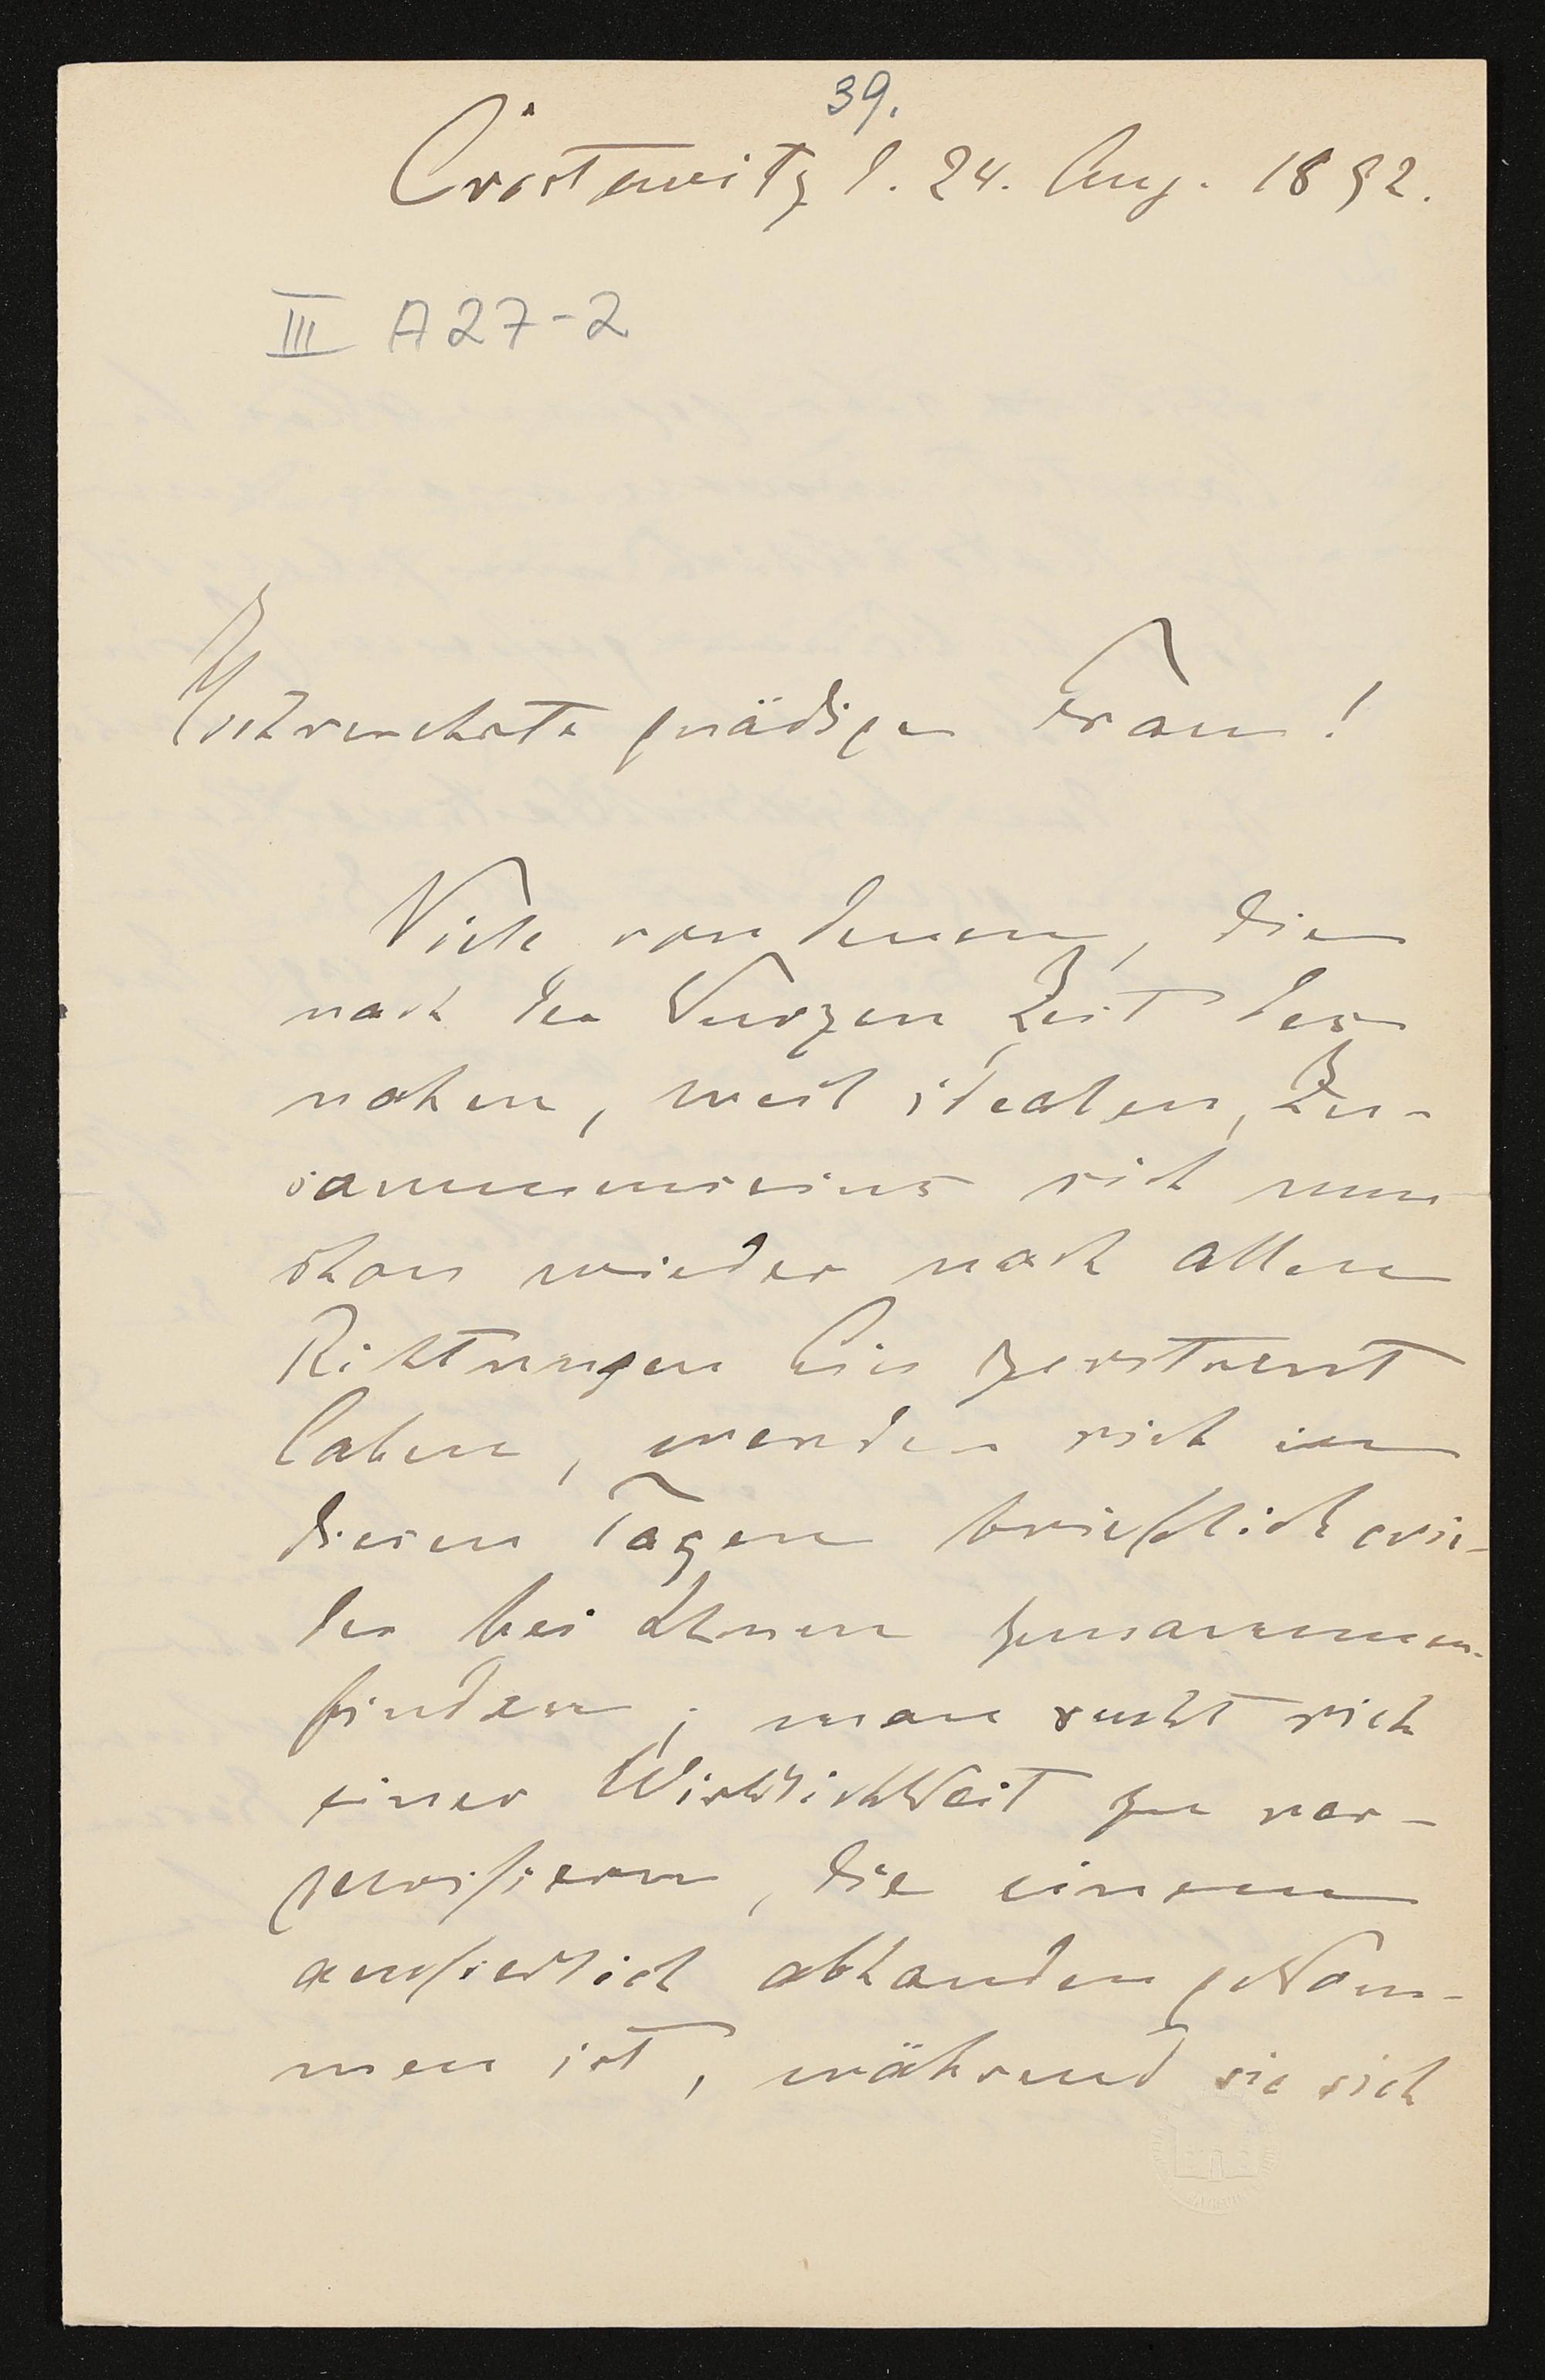 39.
Cröstewitz d. 24. Aug. 1892.
III A27-2
Hochverehrte gnädige Frau!
Viele von denen, die
nach der kurzen Zeit des
nahen, weil idealen, Zu-
sammenseins sich nun
schon wieder nach allen
Richtungen hin zerstreut
haben, werden sich in
diesen Tagen brieflich wie-
der bei Ihnen zusammen-
finden; man sucht sich
einer Wirklichkeit zu ver-
gewissern, die einem
ausserlich abhanden gekom-
men ist, während sie sich